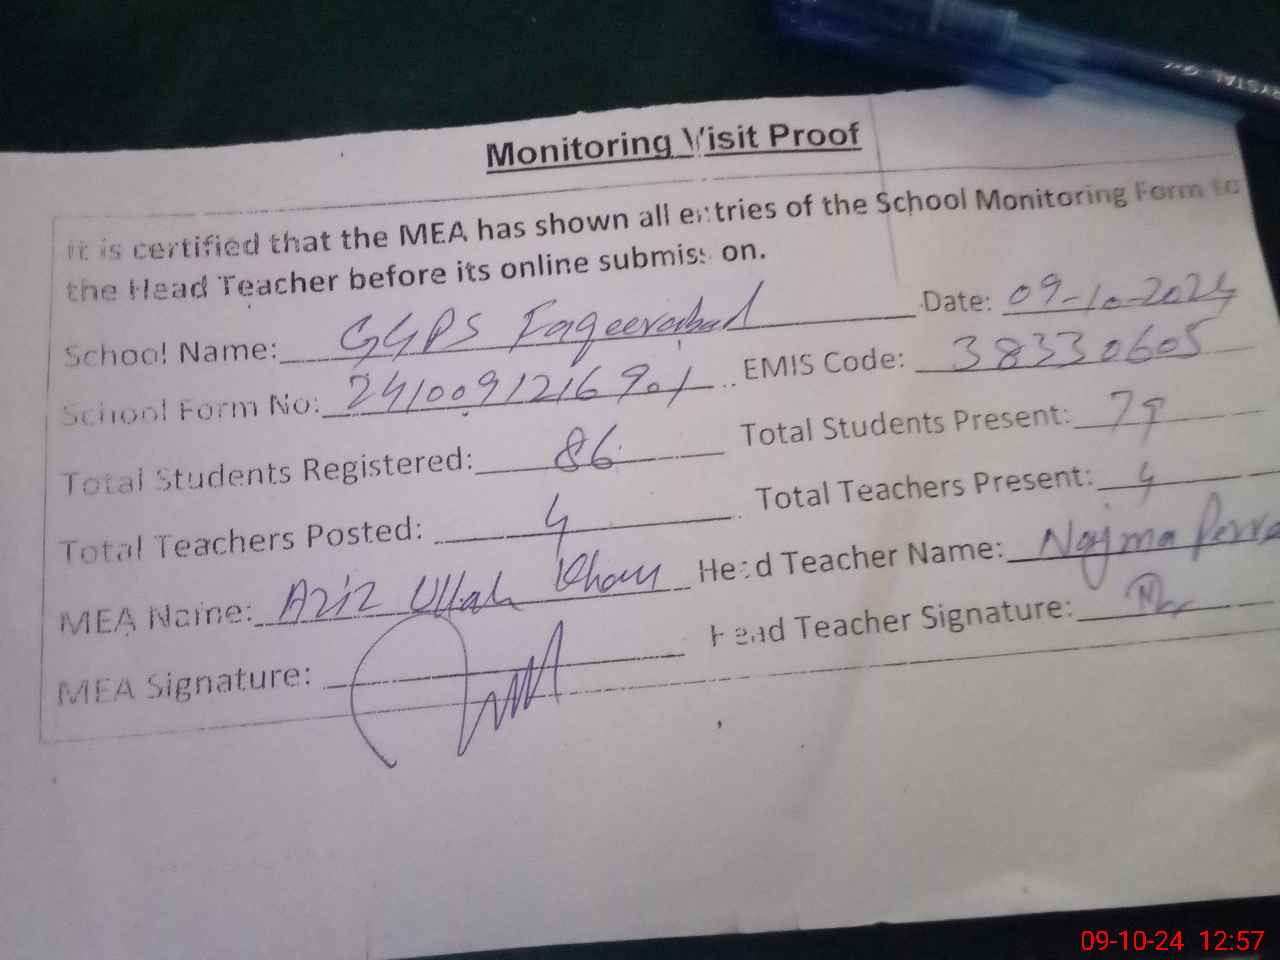 Monitoring Visit Proof
It is certified that the MEA has shown all entries of the School Monitoring Form to
the Head Teacher before its online submission.
School Name: GGPS Faqeerabad Date: 09-10-2024
School Form No: EMIS Code: 38330605
Total Students Registered: 86 Total Students Present:
Total Teachers Posted: 4 Total Teachers Present: 4
MEA Name: Aziz Ullah Khan Head Teacher Name: Najma
MEA Signature: Head Teacher Signature:
09-10-24 12:57